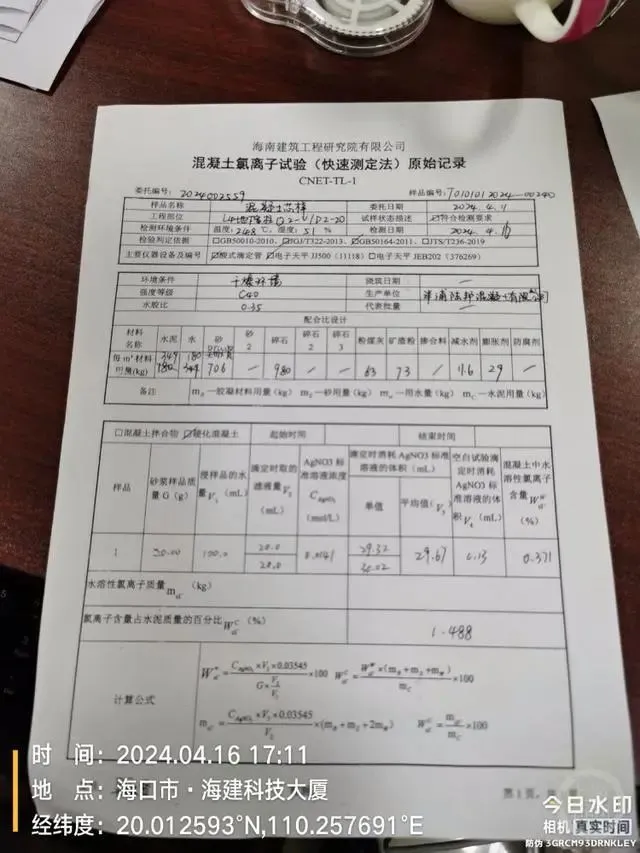 海南建筑工程研究院有限公司
混凝土氯离子试验（快速测定法）原始记录
CNET-TL-1
委托编号: 2024002559 样品编号:
样品名称 混凝土芯样 委托日期 2024.4.11
工程部位 试样状态描述 ☑符合检测要求
检测环境条件 温度: 24.8 ℃, 湿度: 51 % 检测日期 2024.4.16
检验判定依据 □GB50010-2010、☑JGJ/T322-2013、☑GB50164-2011、□JTS/T236-2019
主要仪器设备及编号 ☑酸式滴定管 ☑电子天平 JJ500 (11118) □电子天平 JEB202 (376269)
环境条件 干燥环境 浇筑日期 —
强度等级 C40 生产单位
水胶比 0.35 代表批量 —
配合比设计
材料名称 水泥 水 砂 砂2 碎石 碎石2 碎石3 粉煤灰 矿渣粉 掺合料 减水剂 膨胀剂 防腐剂
每m³材料用量(kg) 349 180 706 / 980 / / 63 73 / 11.6 29 /
备注 m_B—胶凝材料用量（kg） m_S—砂用量（kg） m_w—用水量（kg） m_C—水泥用量（kg）
□混凝土拌合物 ☑硬化混凝土 起始时间 结束时间
样品 砂浆样品质量 G（g） 浸样品的水量V₁（mL） 滴定时取的滤液量V₂（mL） AgNO3 标准溶液浓度 C_AgNO₃（mol/L） 滴定时消耗 AgNO3 标准溶液的体积（mL） 空白试验滴定时消耗 AgNO3 标准溶液的体积V₄（mL） 混凝土中水溶性氯离子含量（%）
单值 平均值（V₃）
1 20.00 100.0 20.0 0.0141 29.32 29.67 0.13 0.371
20.0 30.02
水溶性氯离子质量 m_cl⁻ （kg）
氯离子含量占水泥质量的百分比 W_cl⁻^C （%） 1.488
计算公式
W_cl⁻^W = C_AgNO₃×V₃×0.03545 / (G×V₂/V₁) ×100 W_cl⁻^C = W_cl⁻^W×(m_B+m_S+m_W) / m_C ×100
m_cl⁻ = C_AgNO₃×V₃×0.03545 / V₂ ×(m_B+m_S+2m_W) W_cl⁻^C = m_cl⁻ / m_C ×100
时 间: 2024.04.16 17:11
地 点: 海口市·海建科技大厦
经纬度: 20.012593°N,110.257691°E
今日水印
相机 真实时间
防伪 3GRCM93DRNKLEY